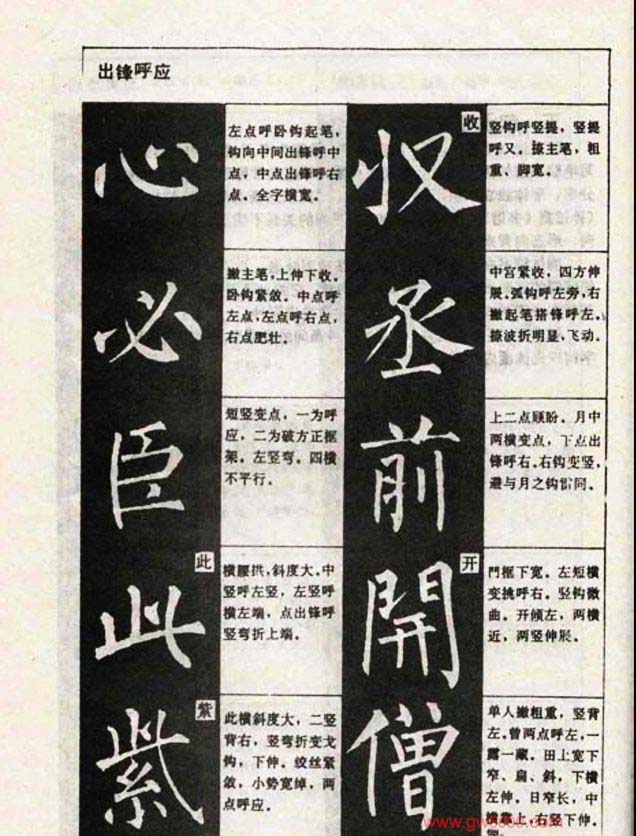 出锋呼应
心
左点呼卧钩起笔，
钩向中间出锋呼中
点，中点出锋呼右
点。全字横宽。
必
撇主笔，上伸下收。
卧钩紧敛。中点呼
左点，左点呼右点，
右点肥壮。
臣
短竖变点，一为呼
应，二为破方正框
架。左竖弯。四横
不平行。
此
此
横腰拱，斜度大。中
竖呼左竖，左竖呼
横左端，点出锋呼
竖弯折上端。
紫
紫
此横斜度大，二竖
背右，竖弯折变戈
钩，下伸。绞丝紧
敛，小势宽绰，两
点呼应。
収
收
竖钩呼竖提，竖提
呼又。捺主笔，粗
重、脚宽。
丞
中宫紧收，四方伸
展。弧钩呼左旁，右
撇起笔搭锋呼左。
捺波折明显、飞动。
前
上二点顾盼。月中
两横变点，下点出
锋呼右。右钩变竖，
避与月之钩雷同。
開
开
門框下宽。左短横
变挑呼右。竖钩微
曲。开倾左，两横
近，两竖伸展。
僧
单人撇粗重，竖背
左。曾两点呼左，一
露一藏。田上宽下
窄、扁、斜，下横
左伸。日窄长，中
上，右竖下伸。